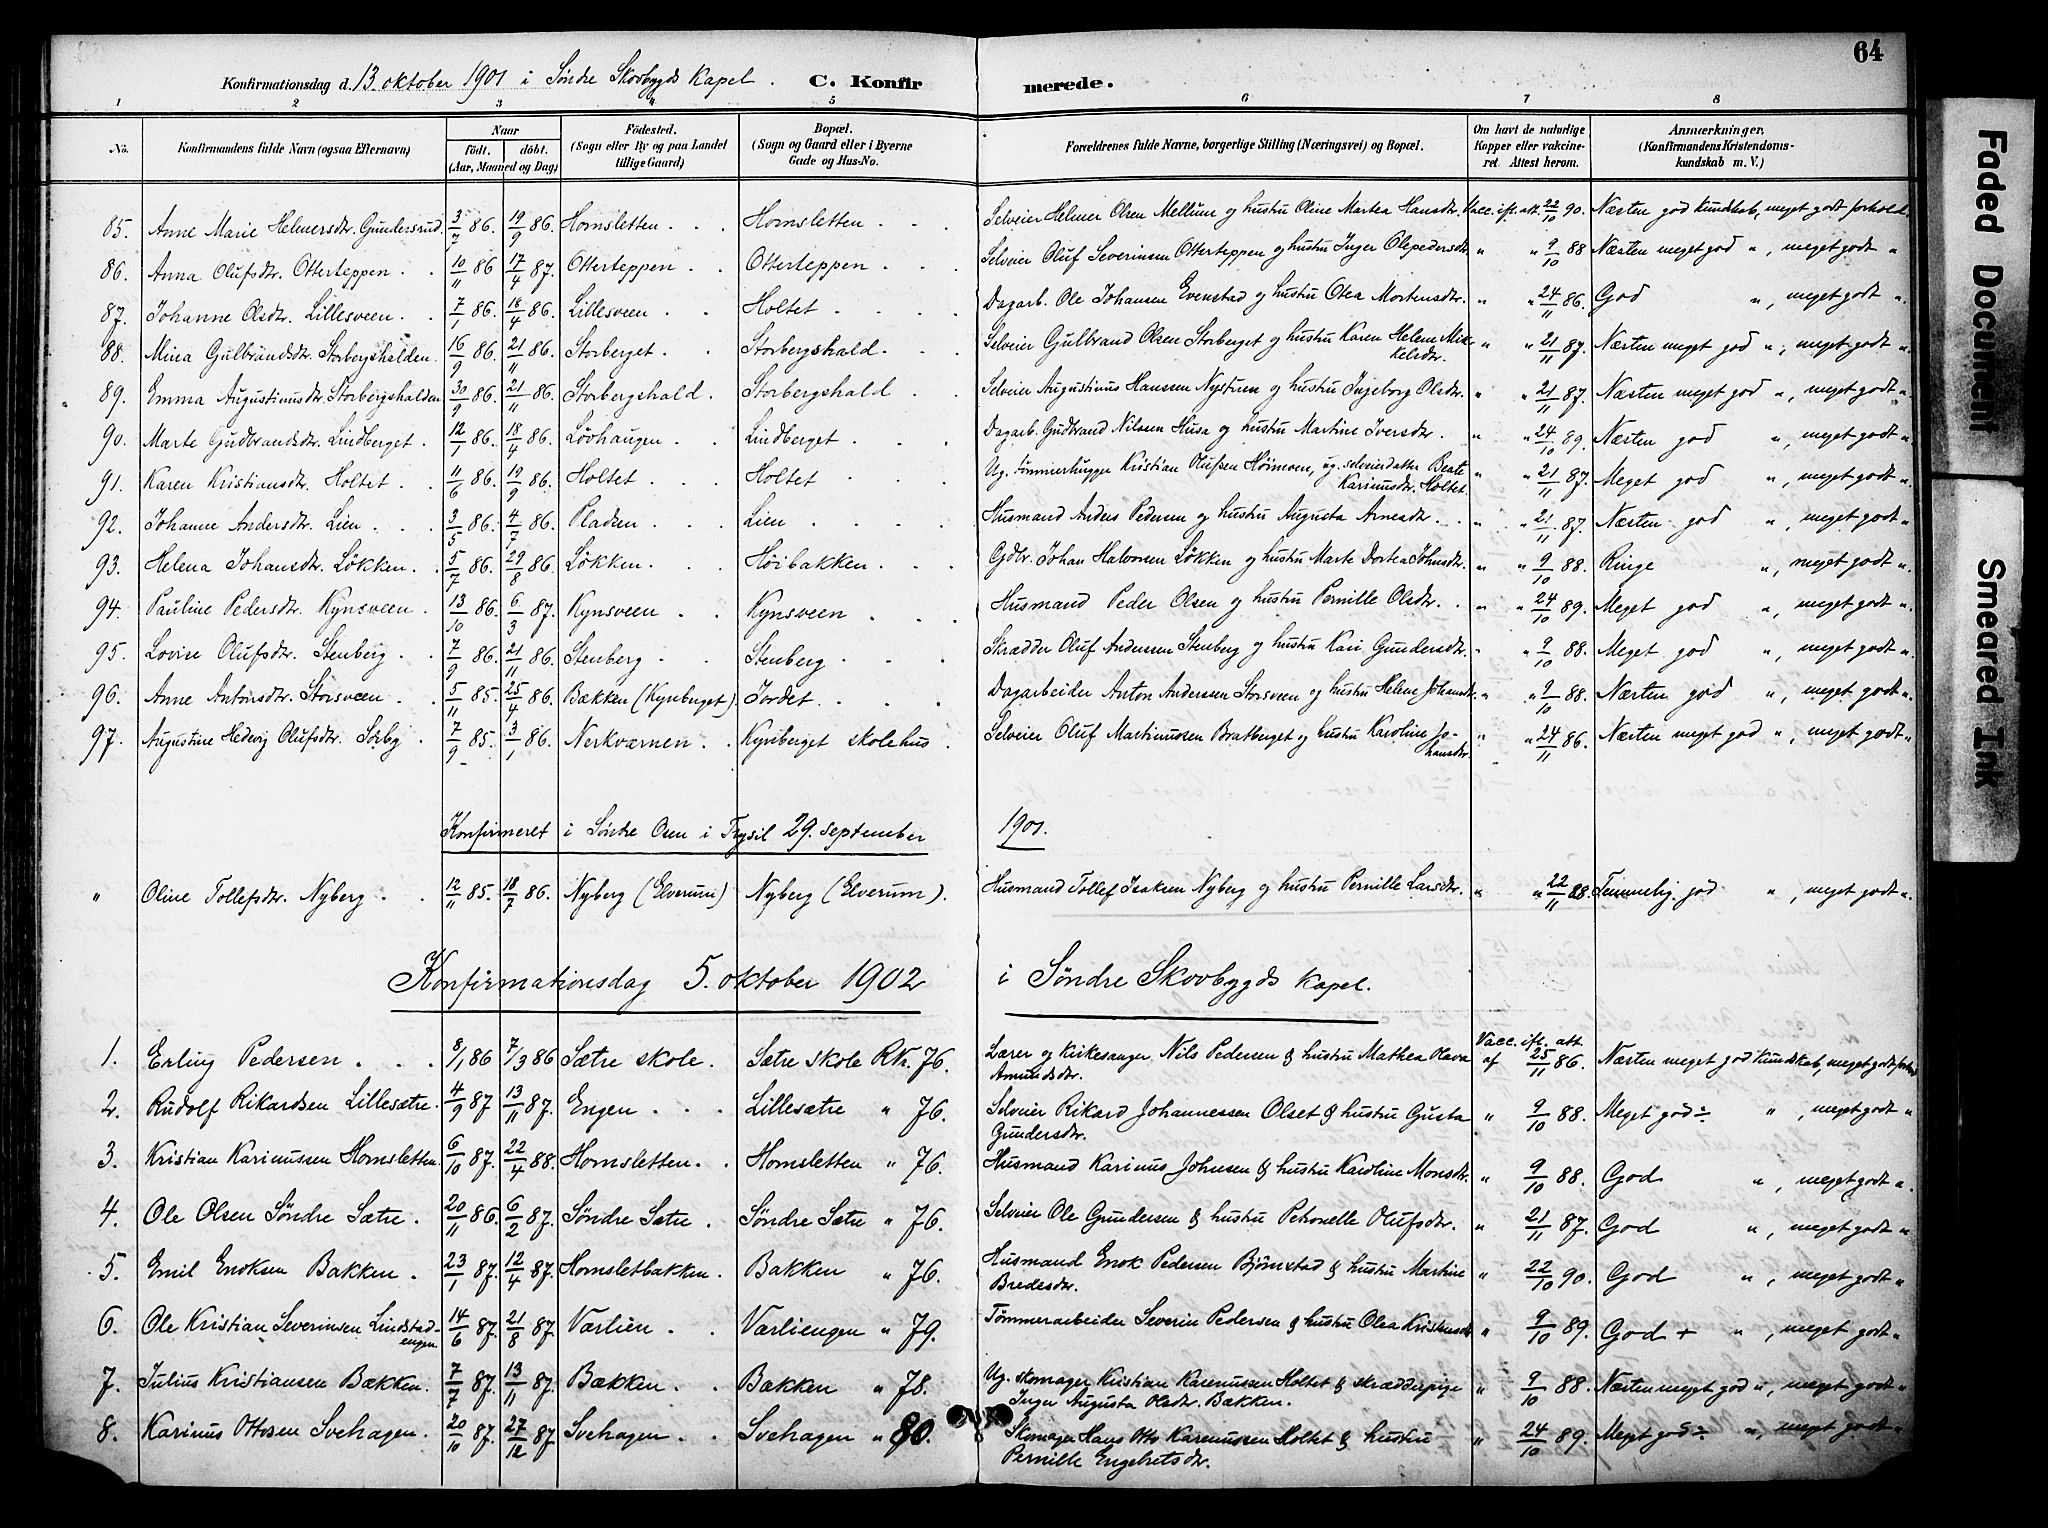 64
Konfirmationsdag d. 13. oktober 1901 i Søndre Skovbygds Kapel. C. Konfirmerede.
1 2 3 4 5 6 7 8
No. Konfirmandens fulde Navn (ogsaa Efternavn) Naar födt. döbt. (Aar, Maaned og Dag) Födested. (Sogn eller By og paa Landet tillige Gaard) Bopæl. (Sogn og Gaard eller i Byerne Gade og Hus-No. Forældrenes fulde Navne, borgerlige Stilling (Næringsvei) og Bopæl. Om havt de naturlige Kopper eller vakcineret. Attest herom. Anmærkninger. (Konfirmandens Kristendomskundskab m. V.)
85. Anne Marie Helmersdtr. Gundersrud. 3/7 86. 19/9 86. Hornsletten Hornsletten Selveier Helmer Olsen Mellum og hustru Oline Martea Hansdtr. Vacc. ifl. att. 22/10 90. Næsten god kundskab, meget godt forhold.
86. Anna Olufsdtr. Otterteppen 10/11 86 17/4 87. Otterteppen Otterteppen Selveier Oluf Severinsen Otterteppen og hustru Inger Olepedersdtr. " " 9/10 88 Næsten meget god ", meget godt "
87. Johanne Olsdtr. Lillesveen 7/1 86. 18/4 86. Lillesveen Holtet Dagarb. Ole Johansen Evenstad og hustru Otea Mortensdtr. " " 24/11 86. God ", meget godt ".
88. Mina Gulbrandsdtr. Storbergshalden 16/9 86. 21/11 86. Storberget Storbergshald Selveier Gulbrand Olsen Storberget og hustru Karen Helene Mikkelsdtr. " " 21/11 87. Næsten meget god ", meget godt ".
89. Emma Augustinusdtr. Storbergshalden 30/9 86. 21/11 86. Storbergshald Storbergshald Selveier Augustinus Hanssen Nysturen og hustru Ingeborg Olsdtr. " " 21/11 87. Næsten meget god ", meget godt ".
90. Marte Gudbrandsdtr. Lindberget 12/1 86. 18/4 86. Løvhaugen Lindberget Dagarb. Gudbrand Nilssen Husa og hustru Martine Iversdtr. " " 24/10 89. Næsten god ", meget godt ".
91. Karen Kristiansdtr. Holtet 11/6 86. 19/9 86. Holtet Holtet Ug. tømmerhugger Kristian Olufsen Høimoen, ug. selveierdatter Beate Karinusdtr. Holtet. " " 21/11 87. Meget god ", meget godt ".
92. Johanne Andersdtr. Lien 3/5 86. 4/7 86. Pladsen Lien Husmand Anders Pedersen og hustru Augusta Arnesdtr. " " 21/11 87. Næsten god ", meget godt ".
93. Helena Johansdtr. Løkken 5/7 86. 29/8 86. Løkken Høibakken Gdbr. Johan Halvorsen Løkken og hustru Marte Dortea Johnsdtr. " " 9/10 88. Ringe ", meget godt ".
94. Pauline Pedersdtr. Kynsveen 13/10 86. 6/3 87. Kynsveen Kynsveen Husmand Peder Olsen og hustru Pernille Olsdtr. " " 24/10 89. Meget god ", meget godt ".
95. Lovise Olufsdtr. Stenberg 7/9 86. 21/11 86. Stenberg Stenberg Skrædder Oluf Andersen Stenberg og hustru Kari Gundersdtr. " " 9/10 88. Meget god ", meget godt ".
96. Anne Antonsdtr. Storsveen 5/11 85. 25/4 86. Bækken (Kynberget) Jordet Dagarbeider Anton Anderssen Storsveen og hustru Helene Johansdtr. " " 9/10 88. Næsten god ", meget godt ".
97. Augustine Hedevig Olufsdtr. Sorby 7/9 85. 3/1 86. Nerkværnen Kynberget skolehus Selveier Oluf Martinussen Bratberget og hustru Karoline Johansdtr. " " 24/11 86. Næsten meget god ", meget godt "
Konfirmeret i Søndre Osen i Trysil 29. september 1901.
" Oline Tollefsdtr. Nyberg 12/11 85. 18/7 86. Nyberg (Elverum) Nyberg (Elverum). Husmand Tollef Isaksen Nyberg og hustru Pernille Larsdtr. " " 22/11 88. Temmelig god ", meget godt ".
Konfirmationsdag 5. oktober 1902 i Søndre Skovbygds Kapel.
1. Erling Pedersen 8/1 86 7/3 86 Sætre skole. Sætre skole Rk. 76. Lærer og kirkesanger Nils Pedersen & hustru Mathea Olava Amundsdtr. Vacc. ifl. att. af 25/11 86. Næsten meget god kundskab, meget godt forhold
2. Rudolf Rikardsen Lillesætre. 4/9 87 13/11 87. Engen Lillesætre " 76. Selveier Rikard Johannessen Olset & hustru Gusta Gundersdtr. " 9/10 88. Meget god ÷ ", meget godt "
3. Kristian Karinussen Hornsletten. 6/10 87. 22/4 88. Hornsletten Hornsletten " 76. Husmand Karinus Johnsen & hustru Karoline Monsdtr. " 9/10 88. God ", meget godt ".
4. Ole Olsen Søndre Sætre. 20/11 86. 6/2 87. Søndre Sætre Søndre Sætre " 76. Selveier Ole Gundersen & hustru Petronelle Olufsdtr. " 21/11 87. God ", meget godt "
5. Emil Enoksen Bakken 23/1 87. 12/4 87. Hornsletbakken. Bakken " 76. Husmand Enok Pedersen Bjørnstad & hustru Martine Bredesdtr. " 22/10 90. God ", meget godt "
6. Ole Kristian Severinsen Lindstadengen 14/6 87. 21/8 87. Værlien Værliengen " 79. Tømmerarbeider Severin Pedersen & hustru Olea Kristensdtr " 9/10 89. God + ", meget godt "
7. Julius Kristiansen Bækken. 7/7 87. 13/11 87. Bækken Bækken " 78. Ug. skomager Kristian Karenussen Holtet & skrædderpige Inger Augusta Olsdtr. Bækken. " 9/10 88. Næsten meget god ", meget godt "
8. Karinus Ottosen Svehagen. 20/10 87. 27/12 87. Svehagen Svehagen " 80. Skomager Hans Otto Karenussen Holtet & hustru Pernille Engebretsdtr. " 24/10 89. Meget god ÷ ", meget godt "
Faded Document
Smeared Ink